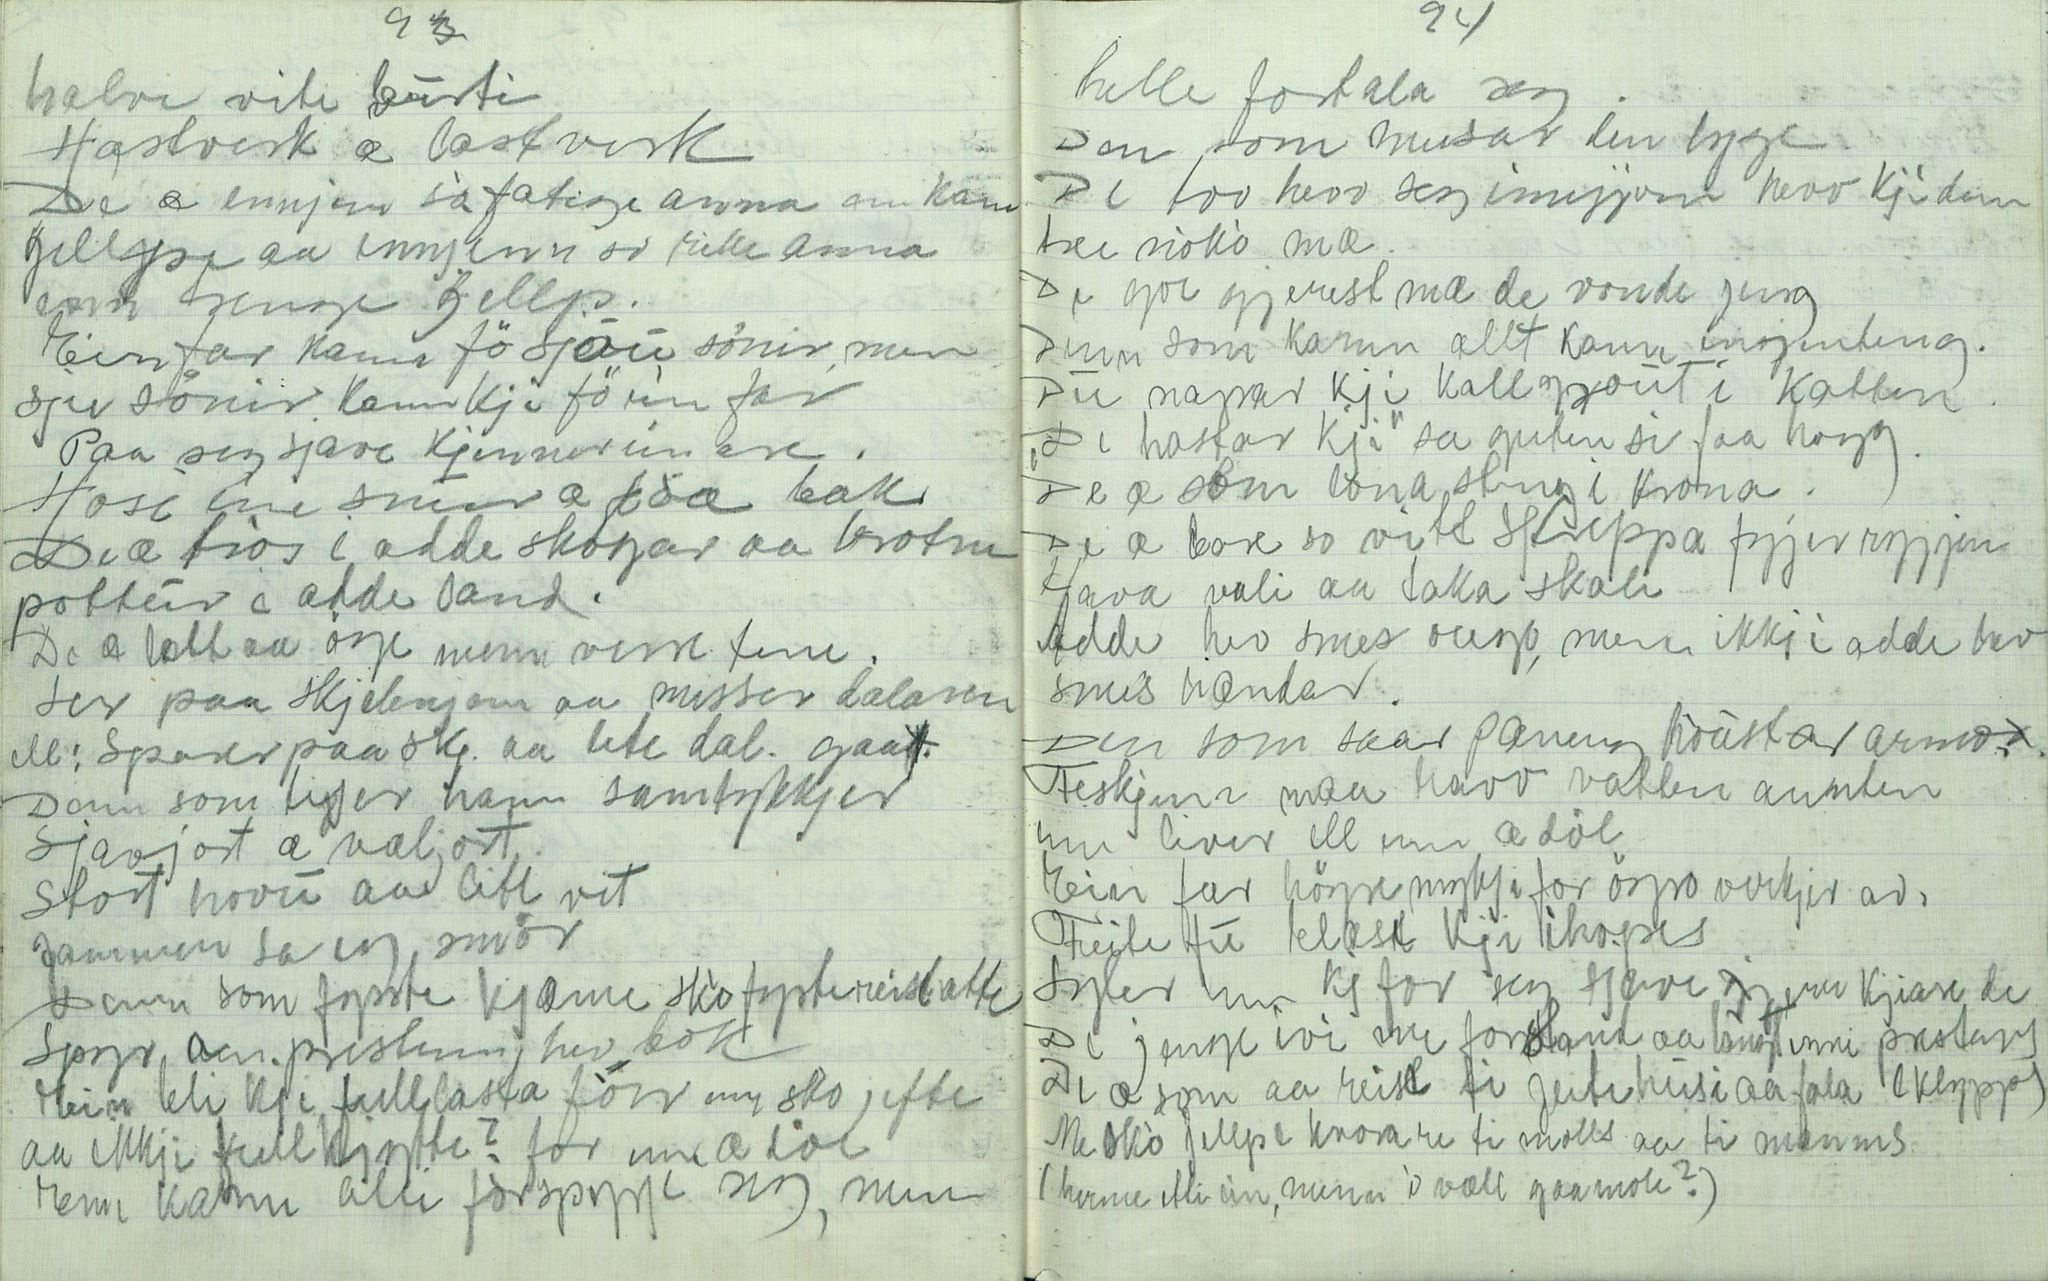 93
halve vite búrti
Hastverk æ lastverk
De æ inngjen så fatige anna enn kann
hjellpe aa inngjenn so rike anna
enn trenge hjellp.
Ein far kann fö sjåú sönir, men
sju sönir kann kji fö ein far
Paa seg sjave kjenner ein are.
Hose ine snúr æ töa bak
De æ tros i adde skogar aa brotne
pottúr i adde land.
De æ lett aa öyge menn verre tene.
Ser paa skjelengen aa misser dalaren
ell: Sparer paa skj. aa lete dal. gaa.
Denn som tegjer hann samtykkjer
Sjavjort æ valjort.
Stort hovú aa litt vit
Jammen sa eg smör
Denn som fyste kjæme sko fyste reise atte
Spyr presten, hev bok
Ein bli kji fulllasta förr my sko jefte
aa ikkji fullkjöfte? for me æ död
Enn kann alli forspyrje seg, men
94
helle fortala seg.
Den som musar den lyge.
De tvo hevv seg imijjom hevv kji den
tree noko mæ.
De goe gjerest mæ de vonde jeng
Denn som kann allt kann ingenteng.
Dú narrar kji kallgrout i katten.
"De hastar kji" sa guten så faa hogg.
De æ som lona sleng i krona.
De æ bare so vitt skreppa fyjer ryggjen
Hava vali aa taka skali
Adde hev smes oug, menn ikkji adde hev
smes hændar.
Den som saar pæning houstar armo.
Feskjenn maa havv vatten annten
nn liver ell enn æ död
Ein fær höyre mykji for öyro verkjer av.
Feite tú kläse kji ihopes
Syter enn kj for seg sjave gjere kji are de
De jenge ivi me forstand aa lönst inni prestens
De æ som aa reise ti jeitehúsi aa fala (klypp)
Me sko jellpe hvorare ti molls aa ti munns
(herme etti ein, menn o vælt gaa mote?)